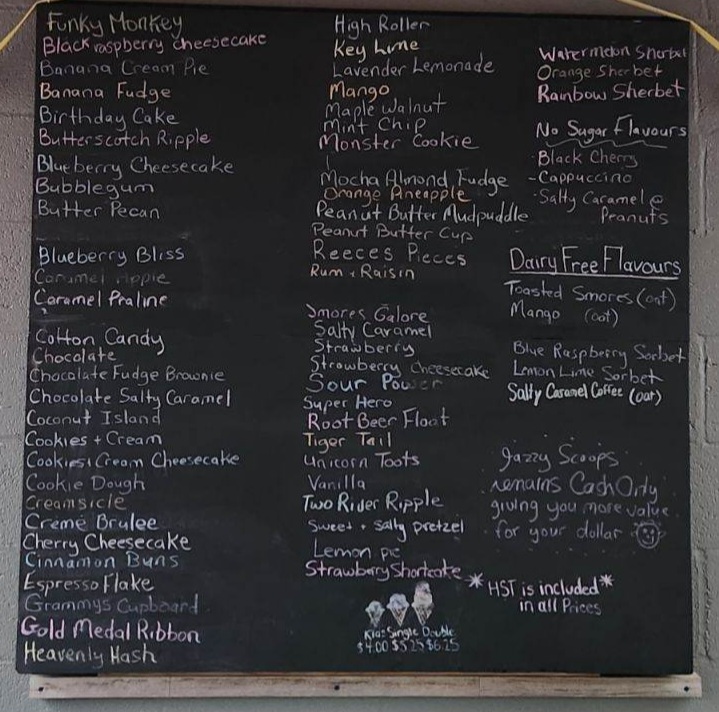 Funky Monkey
Black raspberry cheesecake
Banana Cream Pie
Banana Fudge
Birthday Cake
Butterscotch Ripple
Blueberry Cheesecake
Bubblegum
Butter Pecan
Blueberry Bliss
Caramel ripple
Caramel Praline
Cotton Candy
Chocolate
Chocolate Fudge Brownie
Chocolate Salty Caramel
Coconut Island
Cookies + Cream
Cookies + Cream Cheesecake
Cookie Dough
Creamsicle
Creme Brulee
Cherry Cheesecake
Cinnamon Buns
Espresso Flake
Grammys Cupboard
Gold Medal Ribbon
Heavenly Hash
High Roller
Key Lime
Lavender Lemonade
Mango
Maple Walnut
Mint Chip
Monster Cookie
Mocha Almond Fudge
Orange Pineapple
Peanut Butter Mudpuddle
Peanut Butter Cup
Reeces Pieces
Rum + Raisin
Smores Galore
Salty Caramel
Strawberry
Strawberry Cheesecake
Sour Power
Super Hero
Root Beer Float
Tiger Tail
Unicorn Toots
Vanilla
Two Rider Ripple
Sweet + Salty pretzel
Lemon pie
Strawberry Shortcake
Kids Single Double
$4.00 $5.25 $6.25
Watermelon Sherbet
Orange Sherbet
Rainbow Sherbet
No Sugar Flavours
- Black Cherry
- Cappuccino
- Salty Caramel @
Peanuts
Dairy Free Flavours
Toasted Smores (oat)
Mango (oat)
Blue Raspberry Sorbet
Lemon Lime Sorbet
Salty Caramel Coffee (oat)
Jazzy Scoops
remains Cash Only
giving you more value
for your dollar
*HST is included*
in all Prices